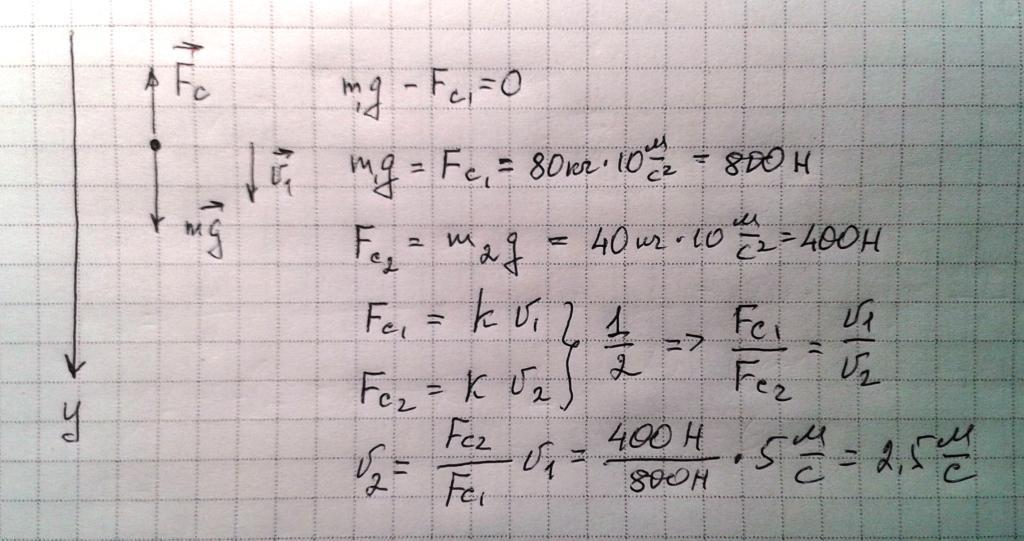 F⃗c
m₁g - Fc₁ = 0
v⃗₁
mg⃗
mg = Fc₁ = 80кг · 10 м/с² = 800 Н
Fc₂ = m₂g = 40 кг · 10 м/с² = 400 Н
Fc₁ = k v₁
Fc₂ = k v₂
} 1/2 => Fc₁/Fc₂ = v₁/v₂
y
v₂ = Fc₂/Fc₁ v₁ = 400 Н/800 Н · 5 м/с = 2,5 м/с